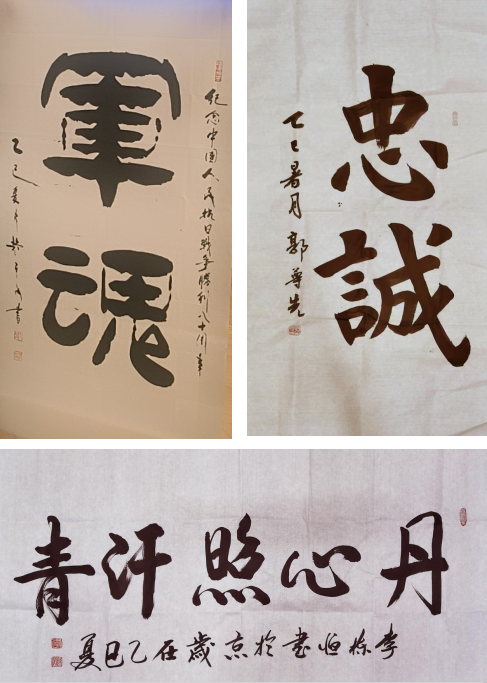 紀念中國人民抗日戰爭勝利八十周年
軍魂
乙巳
書
忠誠
乙巳暑月 郭尊先
丹心照汗青
李栋恒書於京歲在乙巳夏